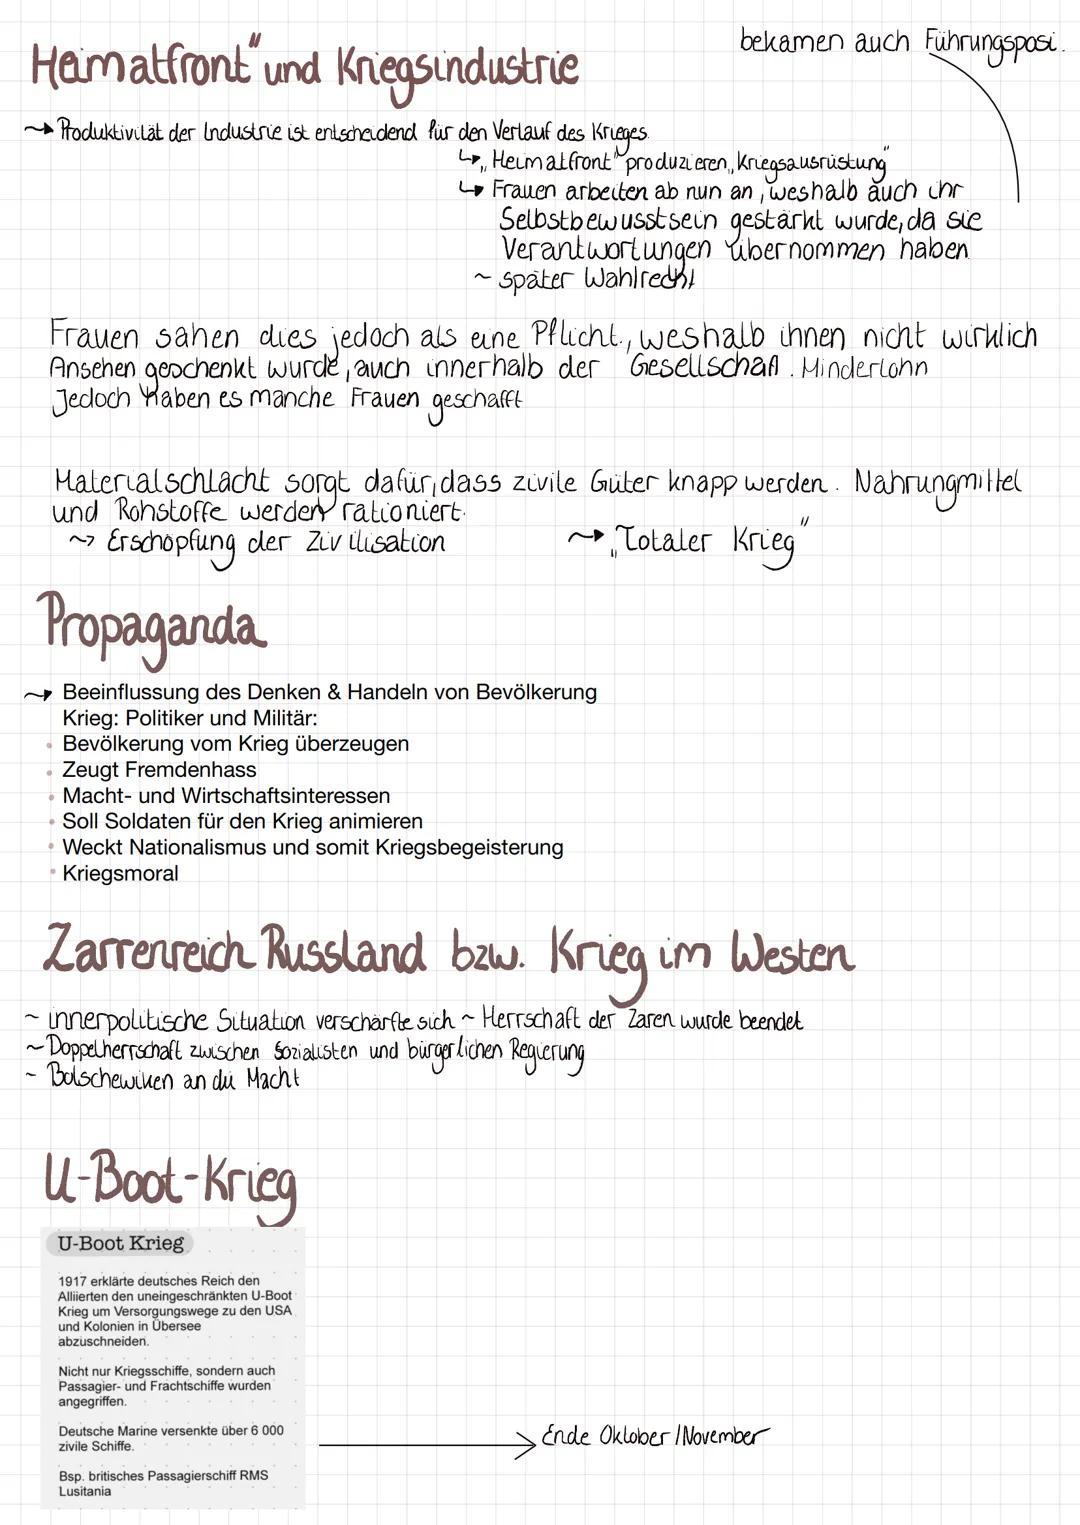 bekamen auch Führungsposi.
Heimatfront" und Kriegsindustrie
~→ Produktivität der Industrie ist entscheidend für den Verlauf des Krieges.
↳ „Heimatfront" produzieren „Kriegsausrüstung"
↳ Frauen arbeiten ab nun an, weshalb auch ihr
Selbstbewusstsein gestärkt wurde, da sie
Verantwortungen übernommen haben.
~ später Wahlrecht
Frauen sahen dies jedoch als eine Pflicht, weshalb ihnen nicht wirklich
Ansehen geschenkt wurde, auch innerhalb der Gesellschaft. Minderlohn
Jedoch haben es manche Frauen geschafft
Materialschlacht sorgt dafür, dass zivile Güter knapp werden. Nahrungmittel
und Rohstoffe werden rationiert.
~> Erschöpfung der Zivilisation ~→ „Totaler Krieg"
Propaganda
~→ Beeinflussung des Denken & Handeln von Bevölkerung
Krieg: Politiker und Militär:
• Bevölkerung vom Krieg überzeugen
• Zeugt Fremdenhass
• Macht- und Wirtschaftsinteressen
• Soll Soldaten für den Krieg animieren
• Weckt Nationalismus und somit Kriegsbegeisterung
• Kriegsmoral
Zarrenreich Russland bzw. Krieg im Westen
~ innerpolitische Situation verschärfte sich ~ Herrschaft der Zaren wurde beendet
~ Doppelherrschaft zwischen Sozialisten und bürgerlichen Regierung
~ Bolschewiken an die Macht
U-Boot-Krieg
U-Boot Krieg
1917 erklärte deutsches Reich den
Alliierten den uneingeschränkten U-Boot
Krieg um Versorgungswege zu den USA
und Kolonien in Übersee
abzuschneiden.
Nicht nur Kriegsschiffe, sondern auch
Passagier- und Frachtschiffe wurden
angegriffen.
Deutsche Marine versenkte über 6 000
zivile Schiffe.
→ Ende Oktober / November
Bsp. britisches Passagierschiff RMS
Lusitania